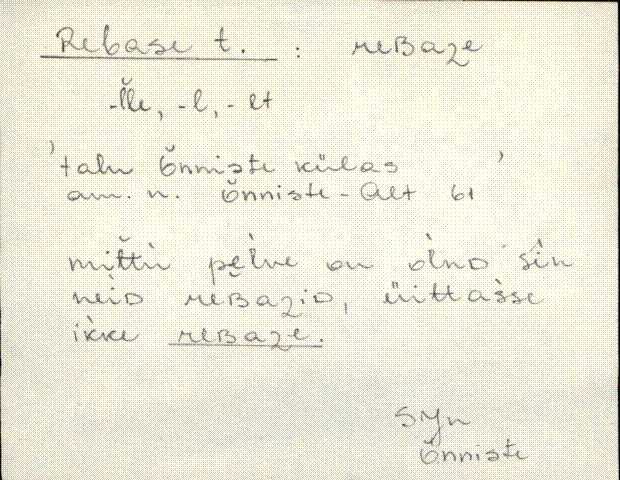 Rebase t. : reBaze
-l̆le, -l, -lt
'talu Õnniste külas'
am. n. Õnniste-Alt 61
mit̆tù pè̮lve on òlnD sìn
neiD reBaziD, üittas̀se
ik̀ke reBaze.
Syn
Õnniste